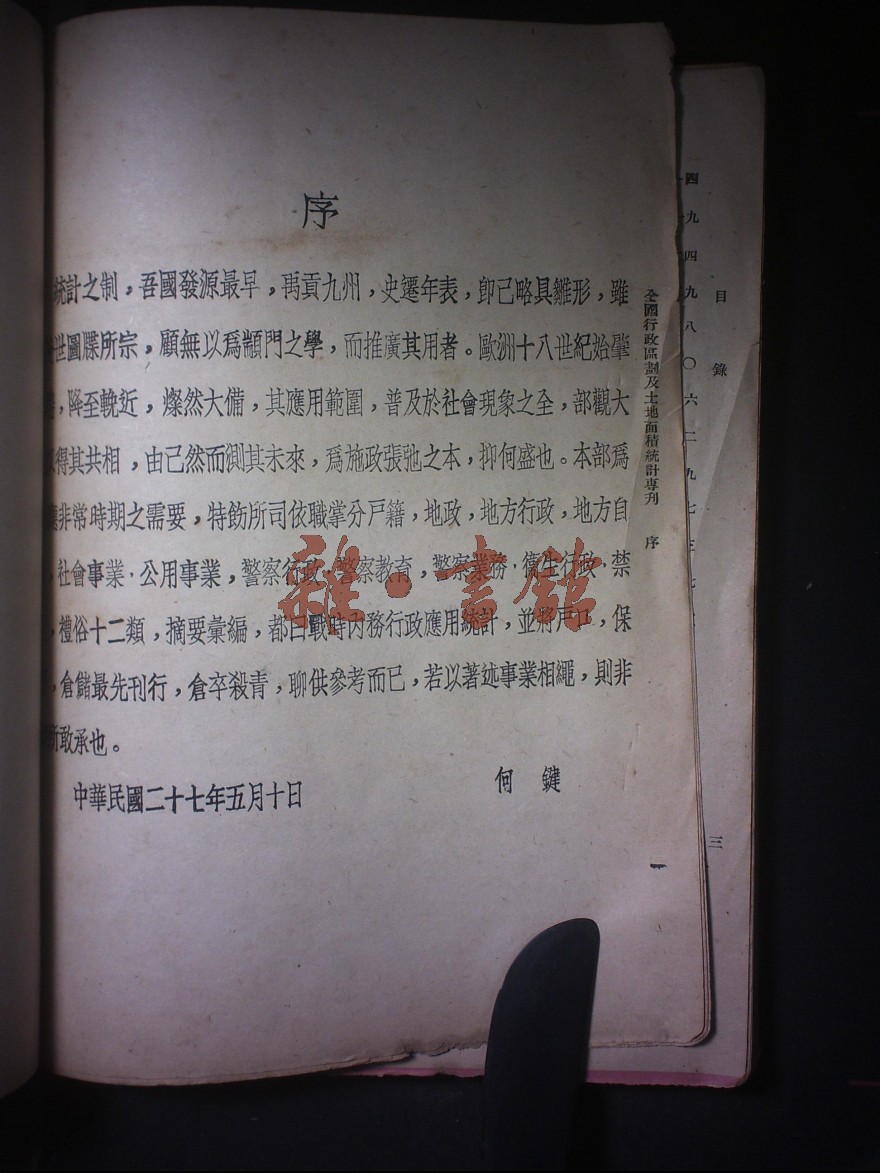 序
統計之制，吾國發源最早，禹貢九州，史遷年表，卽已略具雛形，雖
世圖牒所宗，顧無以爲顓門之學，而推廣其用者。歐洲十八世紀始肇
，降至輓近，燦然大備，其應用範圍，普及於社會現象之全，部觀大
得其共相，由已然而測其未來，爲施政張弛之本，抑何盛也。本部爲
非常時期之需要，特飭所司依職掌分戶籍，地政，地方行政，地方自
，社會事業·公用事業，警察行政，警察教育，警察業務·衞生行政，禁
，禮俗十二類，摘要彙編，都曰戰時內務行政應用統計，並將戶口，保
，倉儲最先刊行，倉卒殺青，聊供參考而已，若以著述事業相繩，則非
所敢承也。
中華民國二十七年五月十日 何鍵
全國行政區劃及土地面積統計專刊 序
一
目錄
三
四九四九八〇六二九七
雜·書館